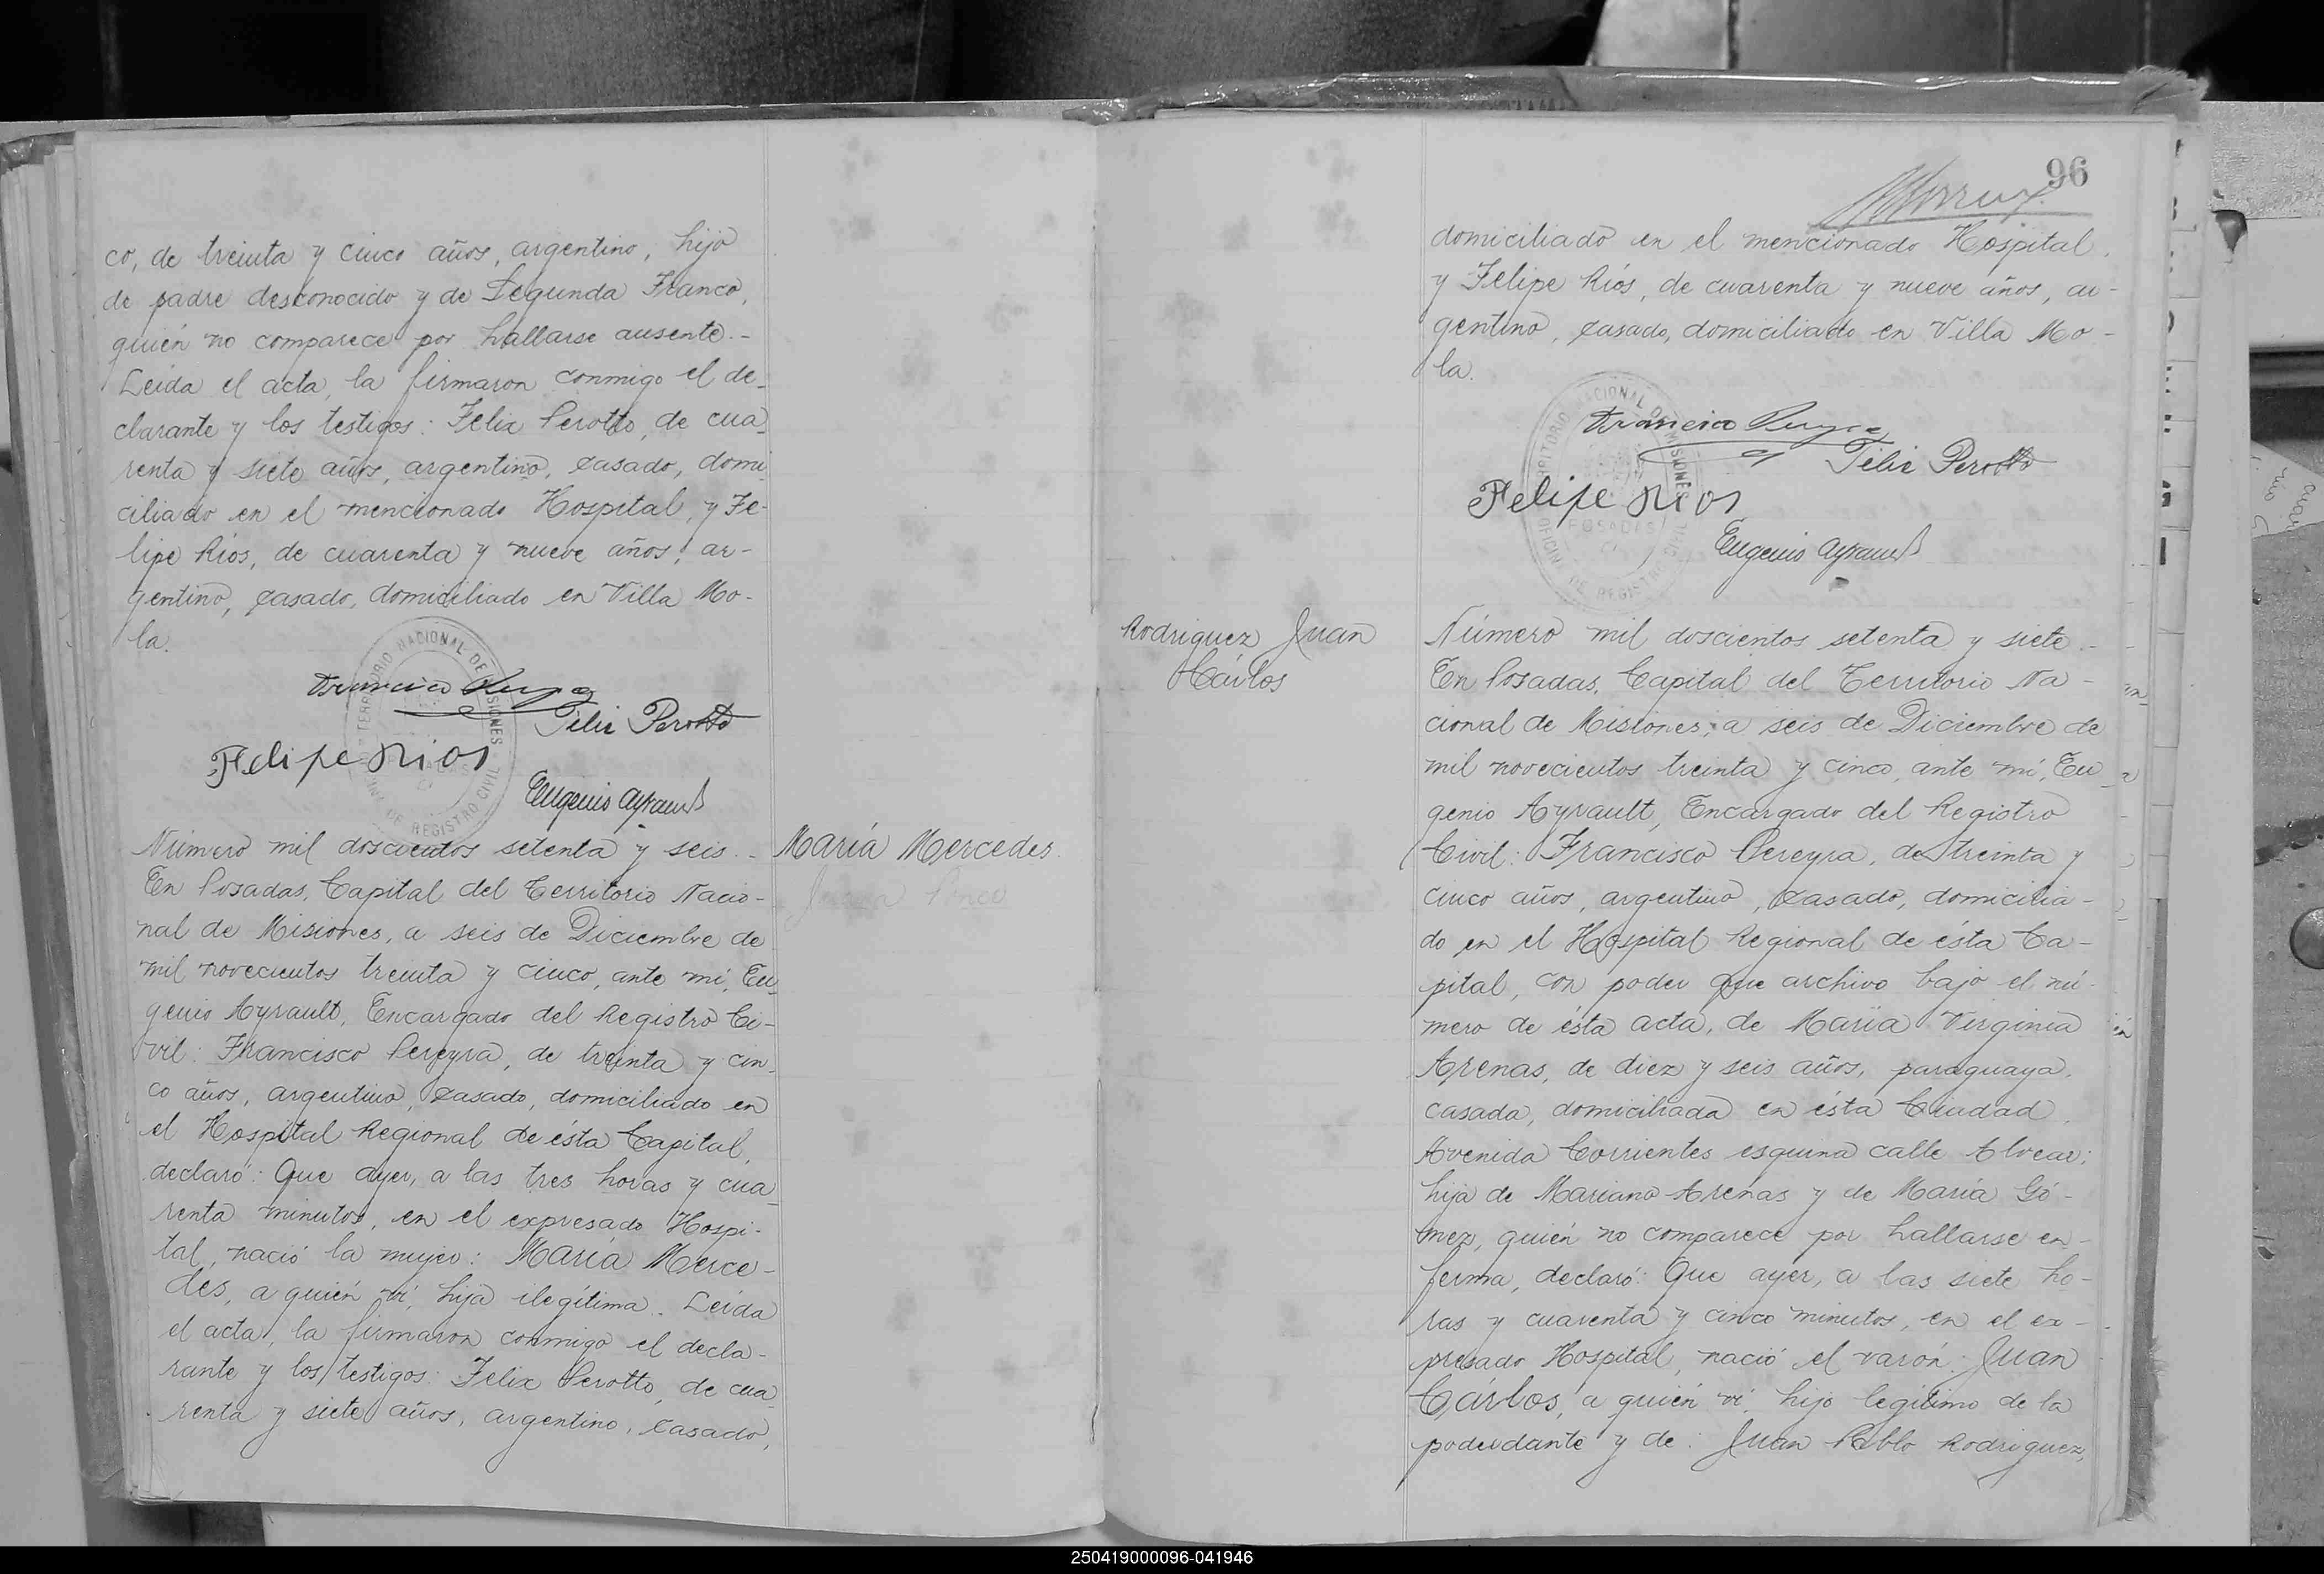 co, de treinta y cinco años, argentino, hijo
de padre desconocido y de Segunda Franco,
quién no comparece por hallarse ausente.-
Leída el acta, la firmaron conmigo el de-
clarante y los testigos: Felix Perotto, de cua-
renta y siete años, argentino, casado, domi-
ciliado en el mencionado Hospital, y Fe-
lipe Ríos, de cuarenta y nueve años, ar-
gentino, casado, domiciliado en Villa Mo-
la.
TERRITORIO NACIONAL DE MISIONES
DE REGISTRO CIVIL
Felix Perotto
Felipe Rios
Eugenio Ayrault
Número mil doscientos setenta y seis.-
María Mercedes
En Posadas, Capital del Territorio Nacio-
nal de Misiones, a seis de Diciembre de
mil novecientos treinta y cinco, ante mí, Eu-
genio Ayrault, Encargado del Registro Ci-
vil: Francisco Pereyra, de treinta y cin-
co años, argentino, casado, domiciliado en
el Hospital Regional de ésta Capital,
declaró: Que ayer, a las tres horas y cua-
renta minutos, en el expresado Hospi-
tal, nació la mujer: María Merce-
des, a quién ví, hija ilegítima. Leída
el acta, la firmaron conmigo el decla-
rante y los testigos: Felix Perotto, de cua-
renta y siete años, argentino, casado,
96
domiciliado en el mencionado Hospital,
y Felipe Ríos, de cuarenta y nueve años, ar-
gentino, casado, domiciliado en Villa Mo-
la.
TERRITORIO NACIONAL DE MISIONES
POSADAS
OFICINA DE REGISTRO CIVIL
Felix Perotto
Felipe Rios
Eugenio Ayrault
Rodriguez Juan
Cárlos
Número mil doscientos setenta y siete.-
En Posadas, Capital del Territorio Na-
cional de Misiones, a seis de Diciembre de
mil novecientos treinta y cinco, ante mí, Eu-
genio Ayrault, Encargado del Registro
Civil: Francisco Pereyra, de treinta y
cinco años, argentino, casado, domicilia-
do en el Hospital Regional de ésta Ca-
pital, con poder que archivo bajo el nú-
mero de ésta acta, de María Virginia
Arenas, de diez y seis años, paraguaya,
casada, domiciliada en ésta Ciudad,
Avenida Corrientes esquina calle Alvear;
hija de Mariano Arenas y de María Gó-
mez, quién no comparece por hallarse en-
ferma, declaró: Que ayer, a las siete ho-
ras y cuarenta y cinco minutos, en el ex-
presado Hospital, nació el varón: Juan
Cárlos, a quién ví, hijo legítimo de la
poderdante y de: Juan Pablo Rodriguez,
250419000096-041946